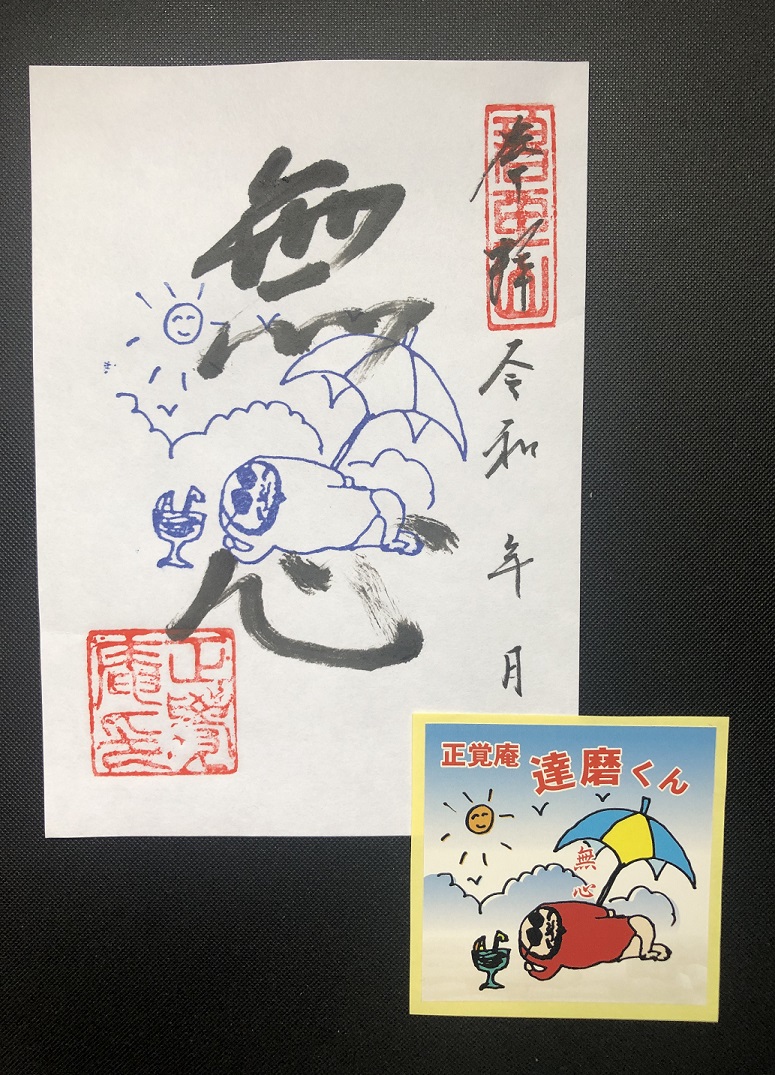 奉拝
令和 年 月
無心
正覺
庵印
正覚庵 達磨くん
無心